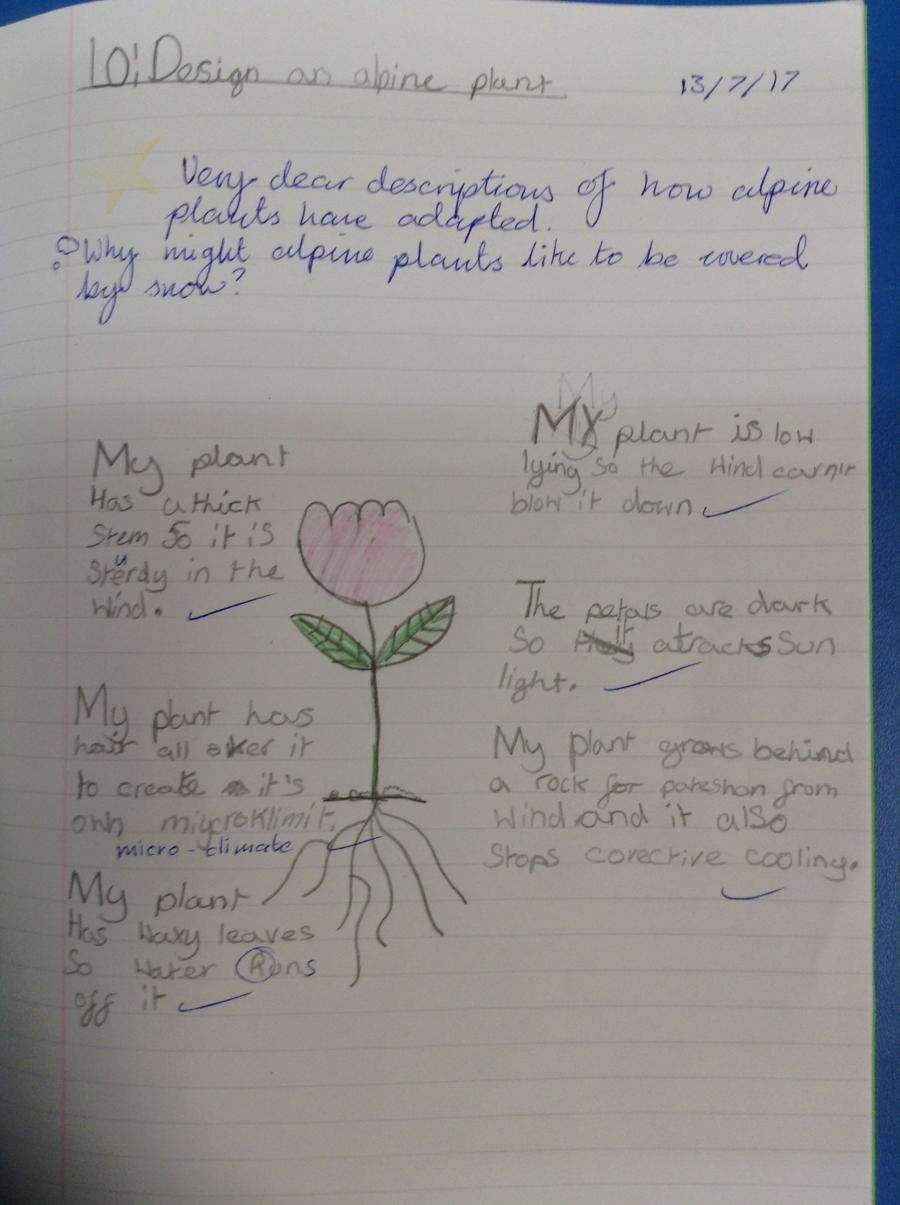 LO; Design an alpine plant
13/7/17
Very clear descriptions of how alpine
plants have adapted.
Why might alpine plants like to be covered
by snow?
My plant
Has a thick
Stem So it is
Sturdy in the
Wind.
My plant has
hair all over it
to create it's
own miycroklimit.
micro-climate
My plant
Has Waxy leaves
So Water Runs
off it
My plant is low
lying So the Wind
blow it down
The petals are dark
So it atracks Sun
light.
My plant grows behind
a rock for poteshon from
Wind and it also
Stops corective cooling.